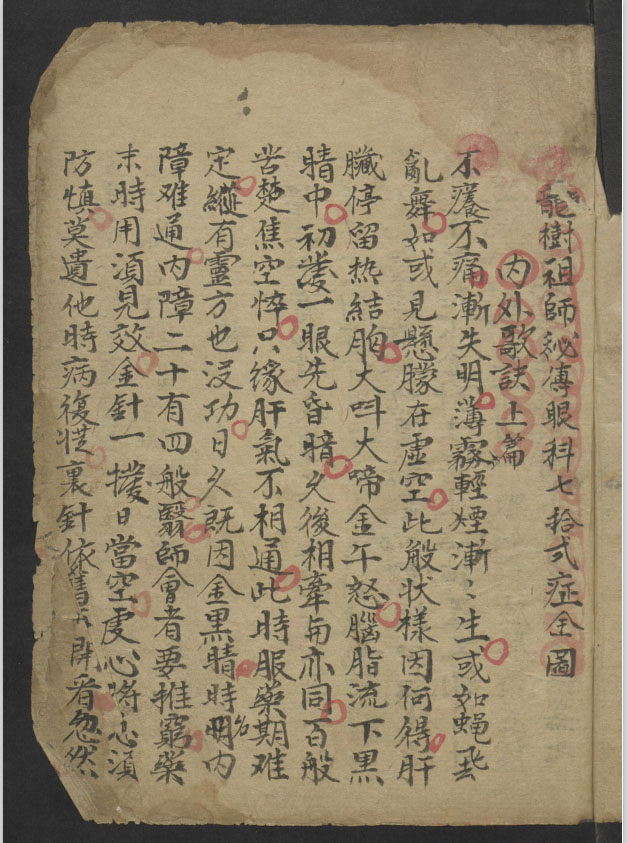 龍樹祖師秘傳眼科七拾弍症全圖
內外歌訣上篇
不癢不痛漸失明薄霧輕烟漸〻生或如蝇飛
亂舞如或見懸朦在虛空此般状樣因何得肝
臟停留热結胸大呌大啼金午怒腦脂流下黑
睛中初發一眼先昏暗久後相牽与亦同百般
苦楚焦空悴只缘肝氣不相通此時服藥期难
定縱有靈方也没功日久既因金黒睛時名内
障难通内障二十有四般翳師會者要推窮藥
末時用須見效金針一撥日當空虔心將息須
防慎莫遺他時病復裏針依舊開看忽然